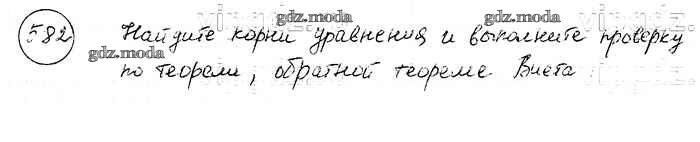 582 Найдите корни уравнения и выполните проверку
по теореми, обратной теореме Виета
gdz.moda
gdz.moda
gdz.moda
gdz.moda